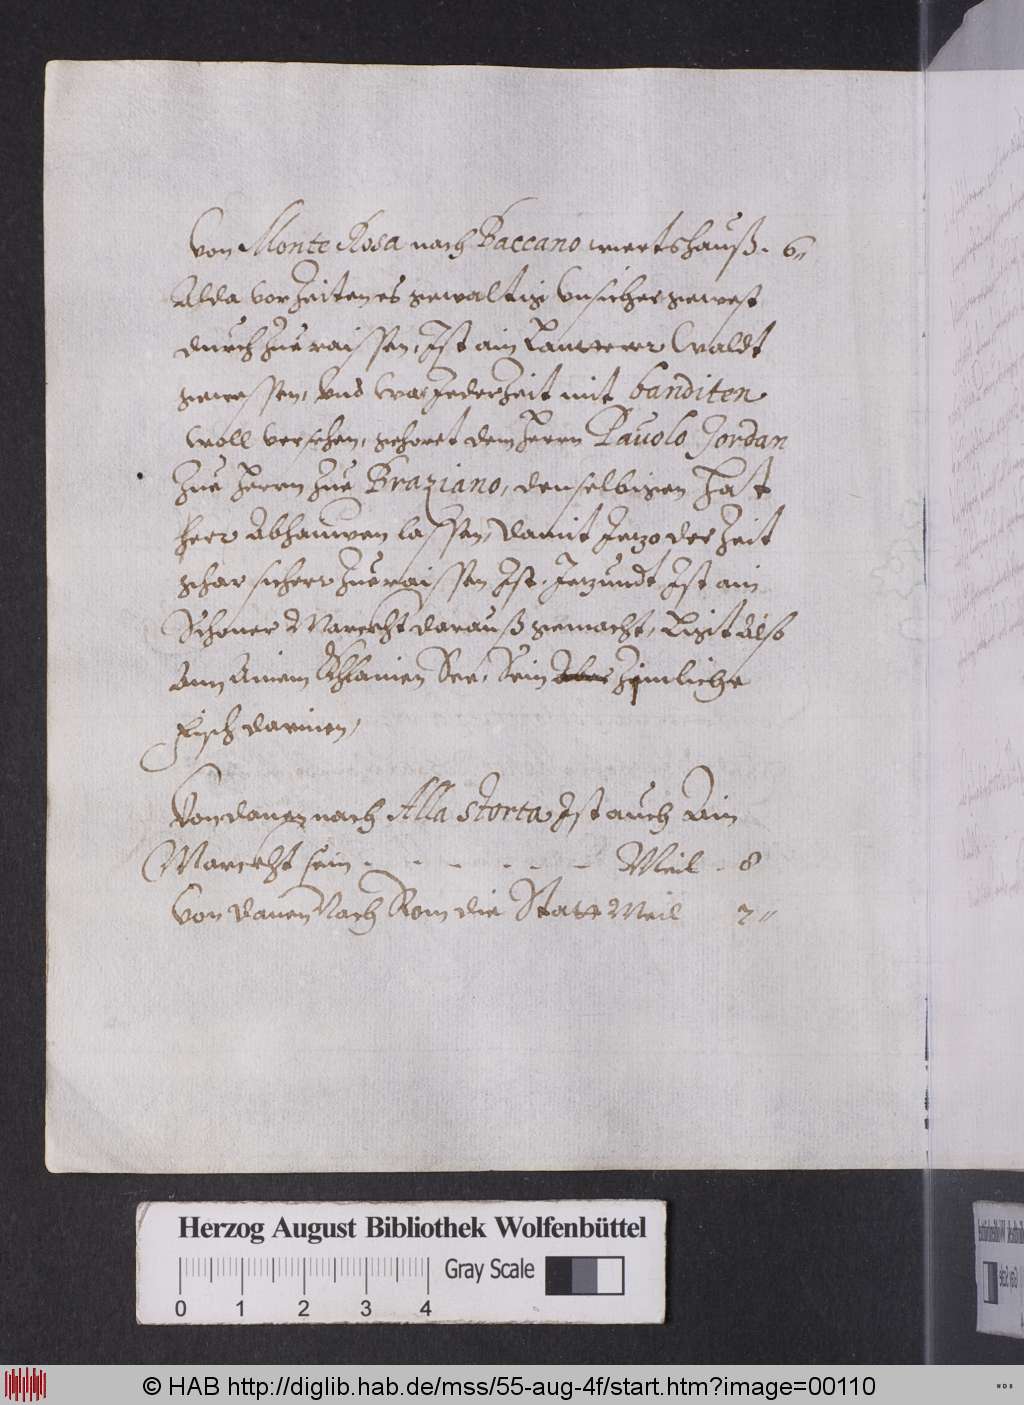 Von Monte Rosa nach Baccano wiertshauß. 6"
Alda vor Zeiten es gewaltig Vnsicher gewest
durch Zue raissen, Ist ain Lautterer Waldt
gewessen, vnd war Jederzeit mit banditen
woll versehen, gehoret dem Herrn Pauolo Jordan
Zue Herrn Zue Braziano, denselbigen hat
herr Abhauwen lassen, damit Jezo der Zeit
ghar sicherr Zue raissen Ist. Jezundt Ist ain
Schoner Marckht darauß gemacht, Ligt Also
Ann Ainem Khlainen See, Sein aber Zimliche
Fisch darinen,
Von danen nach Alla storta Ist auch Ain
Marckht sein - - - - - - Meil - 8
Von danen Nach Rom die Statt Meil 7"
Herzog August Bibliothek Wolfenbüttel
Gray Scale
0 1 2 3 4
© HAB http://diglib.hab.de/mss/55-aug-4f/start.htm?image=00110